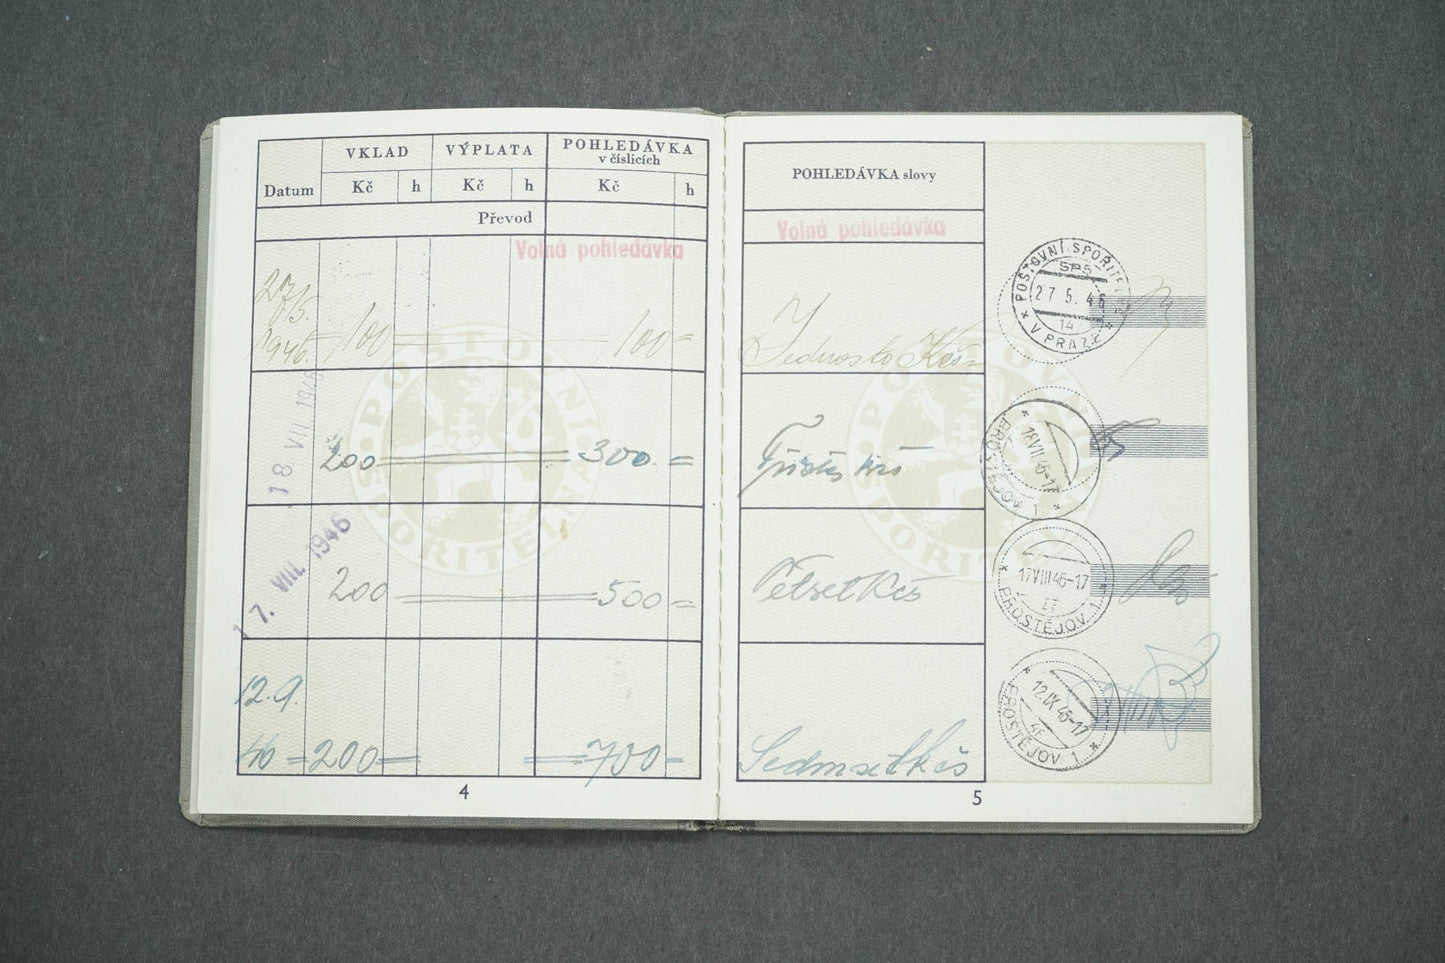 VKLAD VÝPLATA POHLEDÁVKA
v číslicích
Datum Kč h Kč h Kč h
Převod
Volná pohledávka
27/5.
1946. 100 100 =
18 VII. 1946
200 300. =
17. VIII. 1946
200 500 =
12.9.
46 = 200 = 700 =
4
POHLEDÁVKA slovy
Volná pohledávka
Jednosto Kčs
Třista kčs
Pětset Kčs
Sedmset kčs
POŠTOVNÍ SPOŘITELNA
SP5
27 5. 46
14
V PRAZE
18VII 46-17
PROSTĚJOV 1
17VIII46-17
4F
PROSTĚJOV 1
12.IX 46-17
4F
PROSTĚJOV 1
POŠTOVNÍ SPOŘITELNA
5